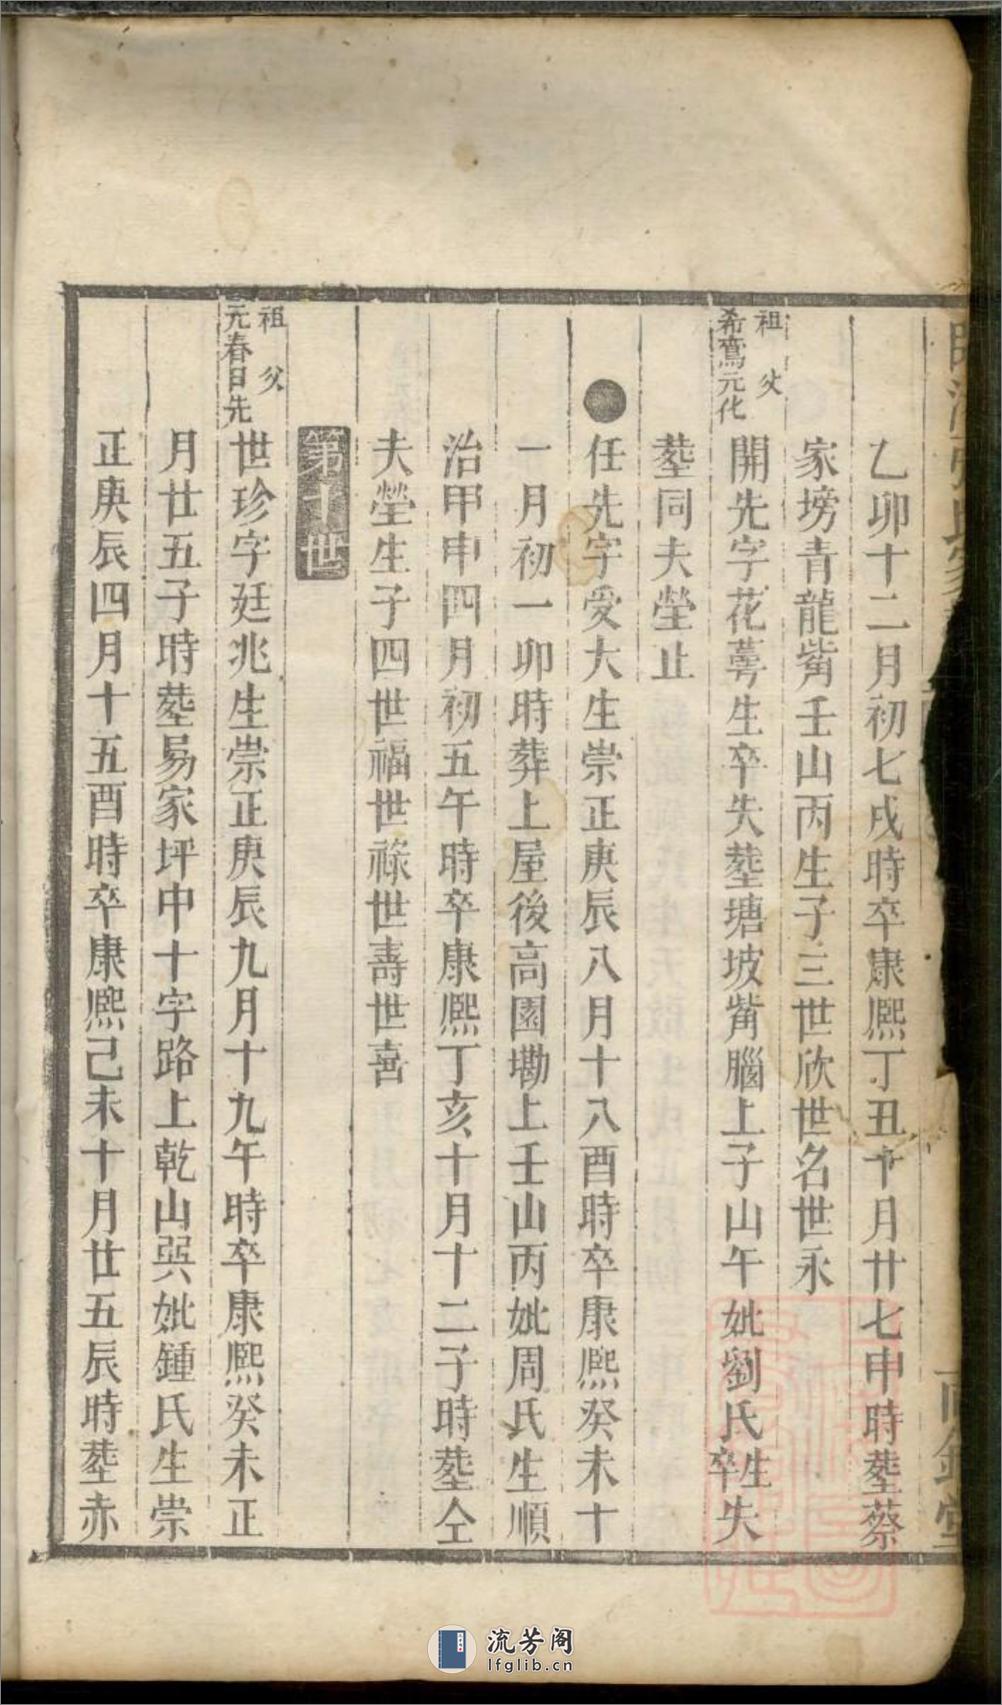 乙卯十二月初七戌時卒康熙丁丑十月廿七申時塟蔡
家塝青龍嘴壬山丙生子三世欣世名世永
祖父
希鶱元化
開先字花萼生卒失塟塘坡嘴腦上子山午妣劉氏生卒失
塟同夫塋止
任先字受大生崇正庚辰八月十八酉時卒康熙癸未十
一月初一卯時葬上屋後高園墈上壬山丙妣周氏生順
治甲申四月初五午時卒康熙丁亥十月十二子時塟仝
夫塋生子四世福世祿世壽世喜
第十世
祖父
元春日先
世珍字廷兆生崇正庚辰九月十九午時卒康熙癸未正
月廿五子時塟易家坪中十字路上乾山巽妣鍾氏生崇
正庚辰四月十五酉時卒康熙己未十月廿五辰時塟赤
流芳阁
lfglib.cn